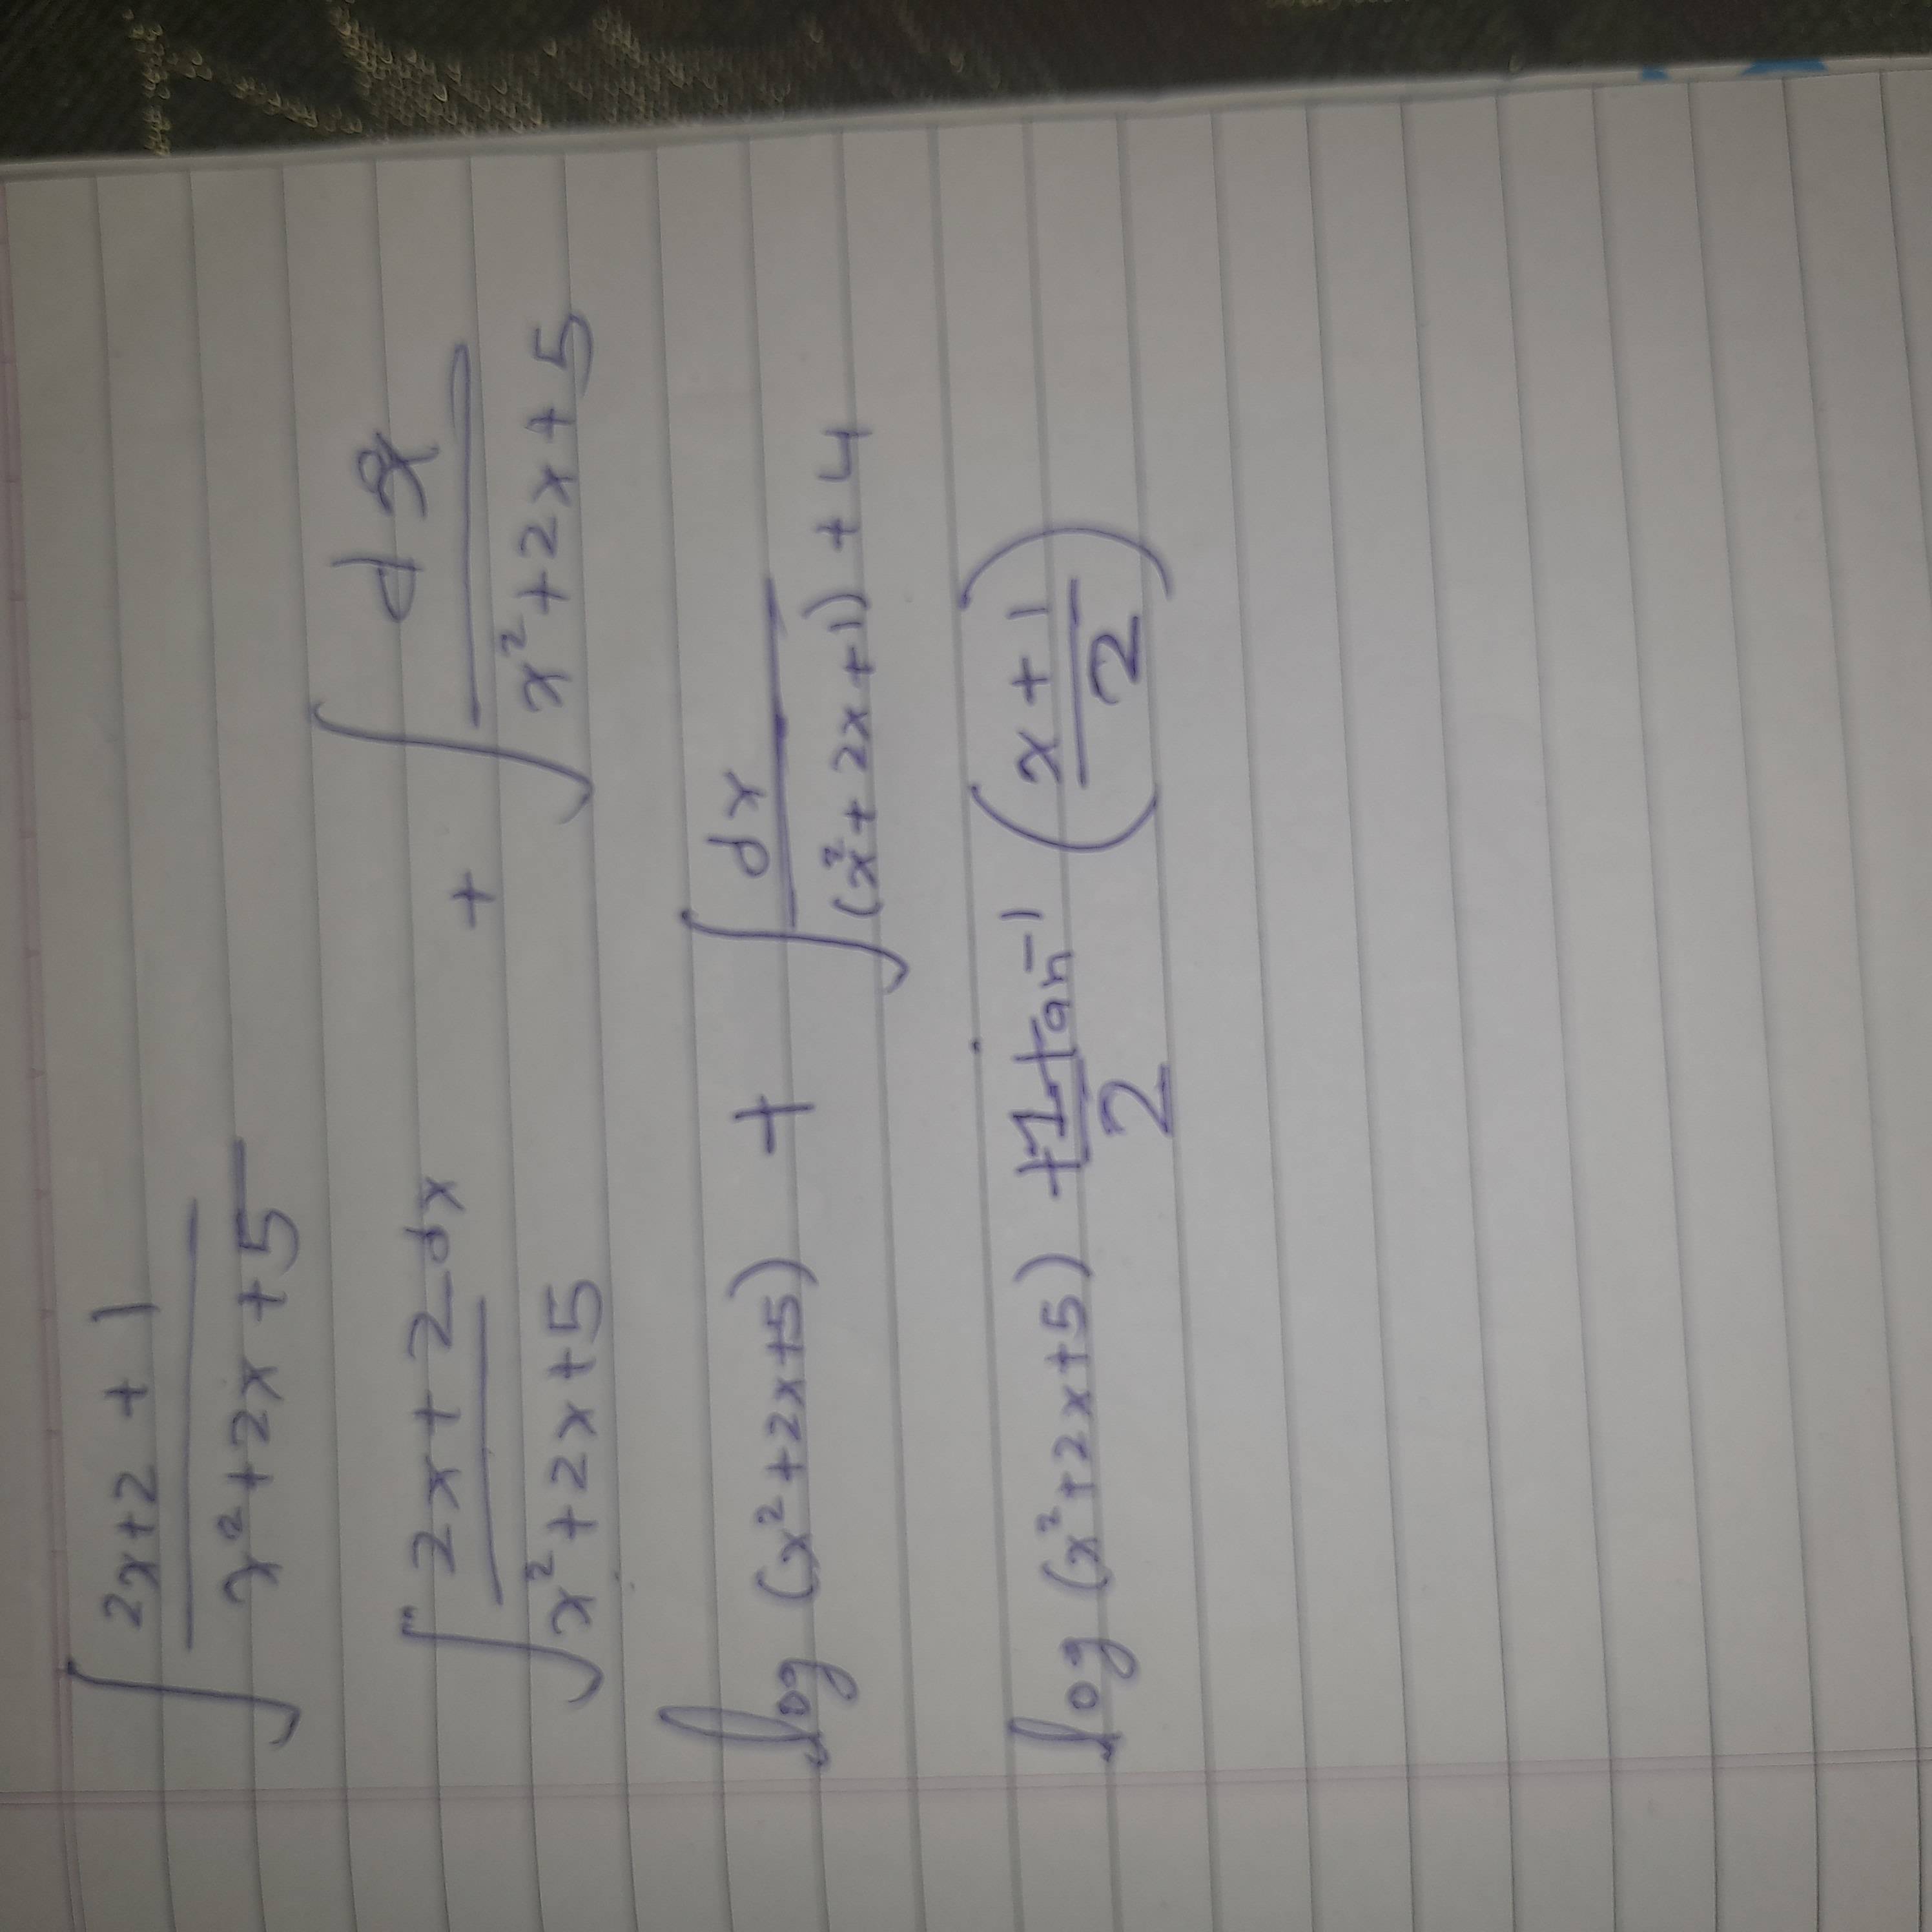 ∫ (2x+2 + 1)/(x²+2x+5)
∫ (2x+2 dx)/(x²+2x+5) + ∫ dx/(x²+2x+5)
log (x²+2x+5) + ∫ dx/((x²+2x+1)+4)
log (x²+2x+5) + 1/2 tan⁻¹ ((x+1)/2)